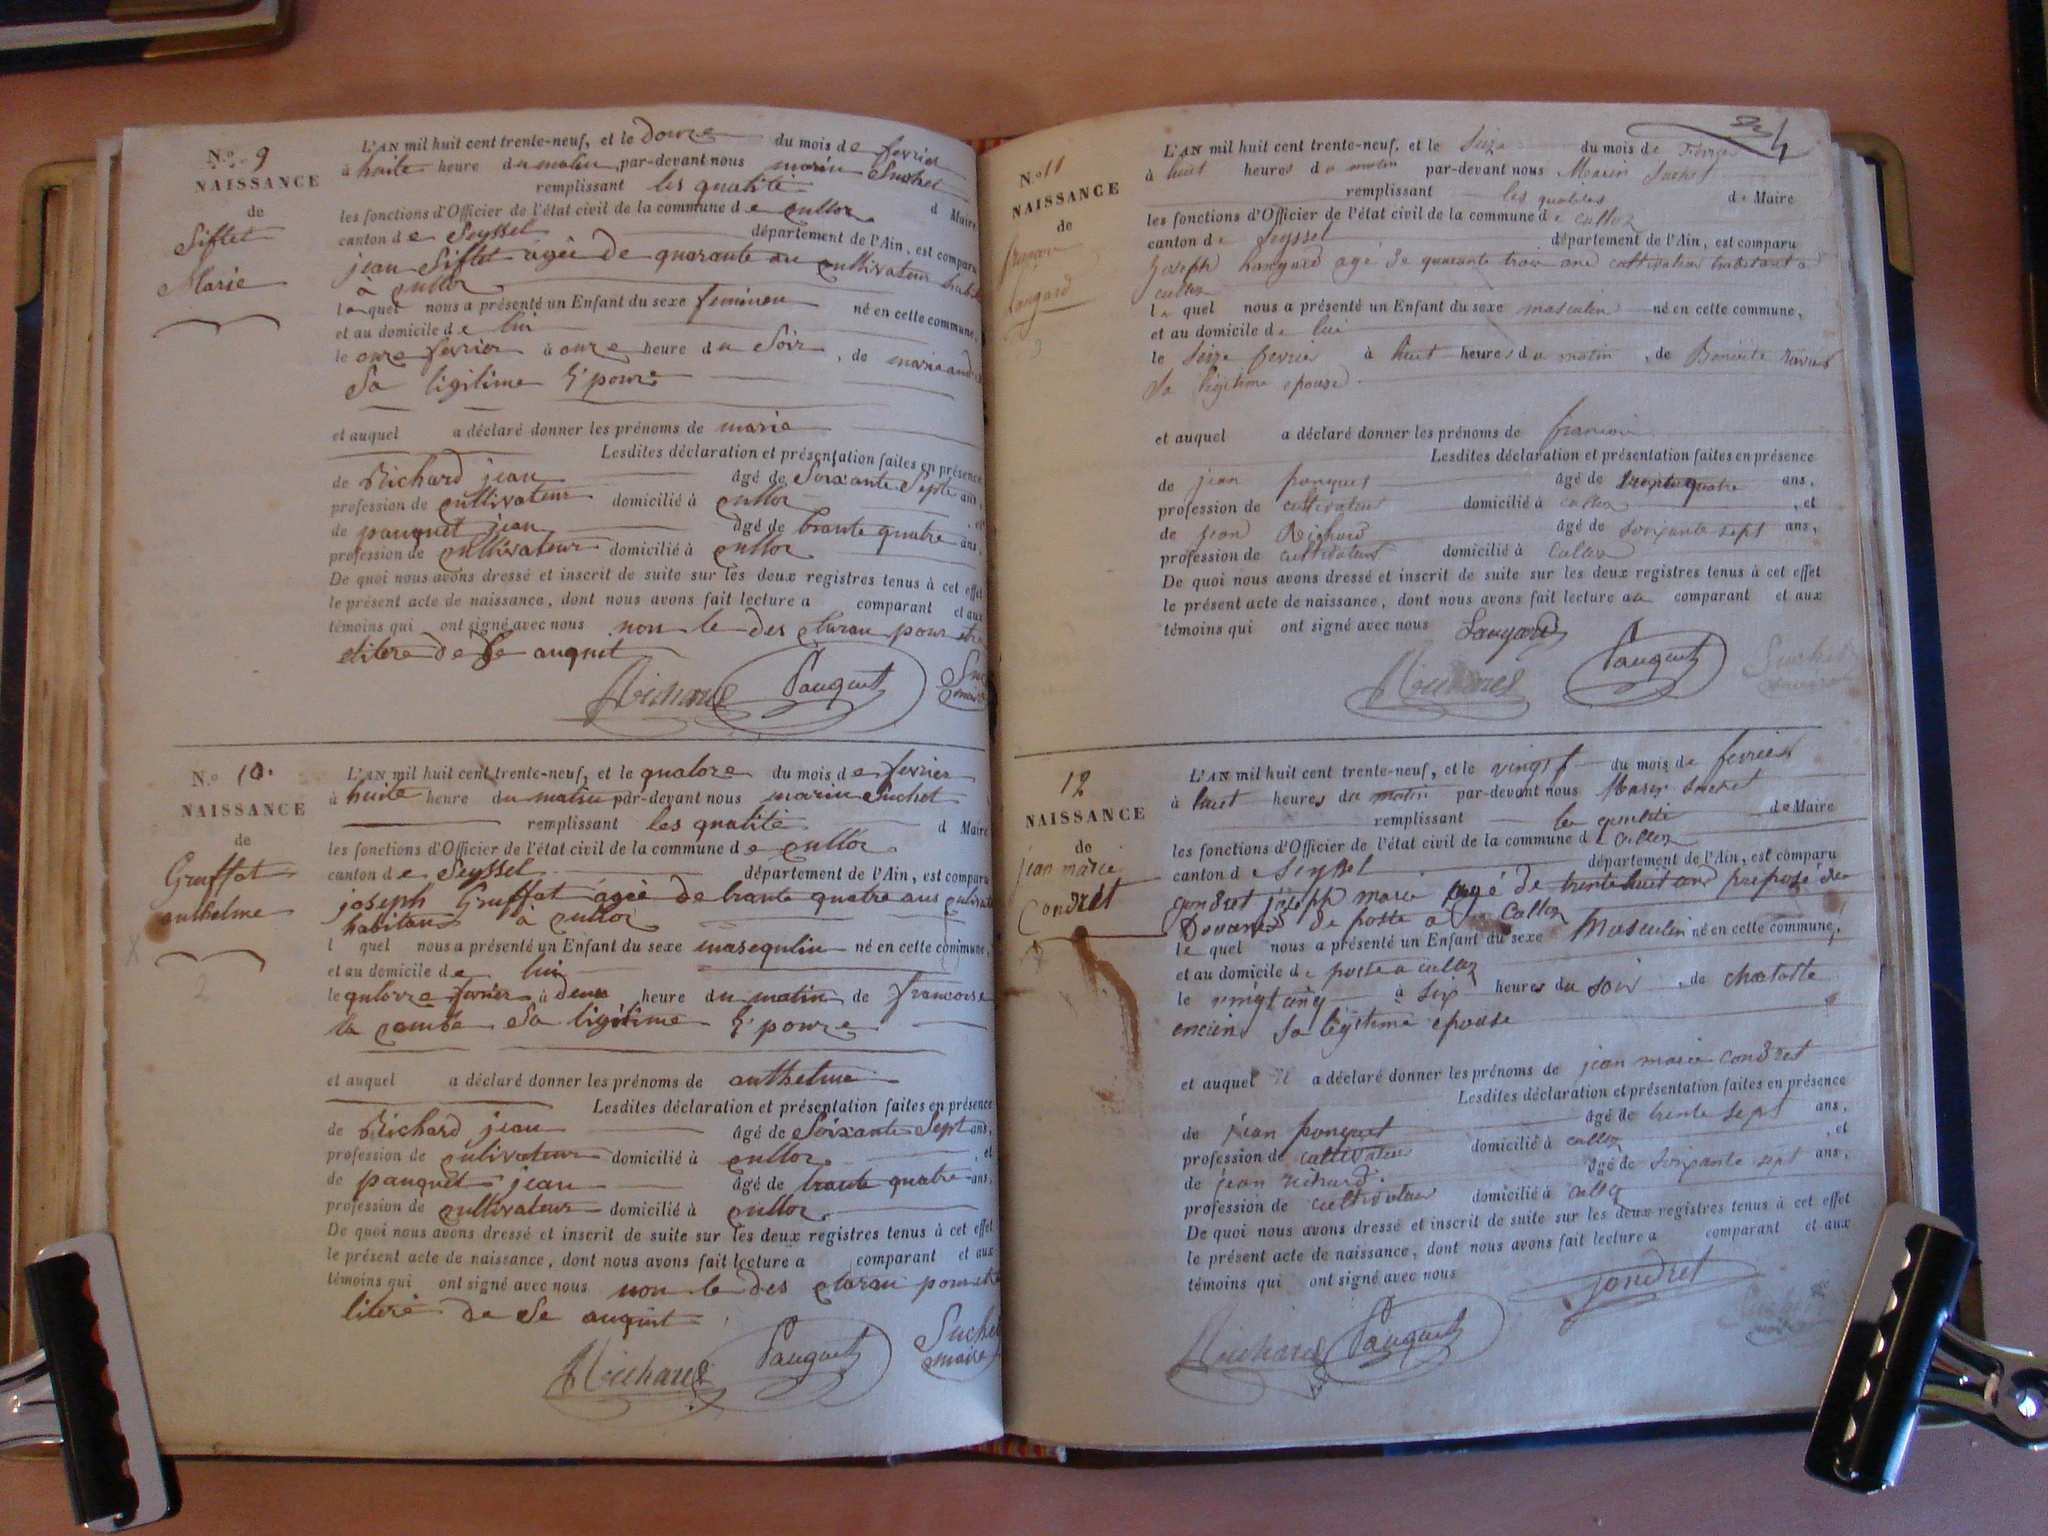 N.o 9
NAISSANCE
de
Siflet
Marie
L'AN mil huit cent trente-neuf, et le douze du mois de fevrier
à huite heure du matin par-devant nous marin Suchet
remplissant les qualité d Maire
les fonctions d'Officier de l'état civil de la commune de culloz
canton de Seyssel département de l'Ain, est comparu
jean Siflet agée de quarante an cultivateur
à culloz
l quel nous a présenté un Enfant du sexe feminen né en cette commune,
et au domicile de lui
le onze fevrier à onze heure du Soir, de marie
Sa ligitime Epouze
et auquel a déclaré donner les prénoms de marie
Lesdites déclaration et présentation faites en présence
de Richard jean âgé de Soixante Septe ans,
profession de cultivateur domicilié à culloz, et
de pauquet jean âgé de trante quatre ans,
profession de cultivateur domicilié à culloz
De quoi nous avons dressé et inscrit de suite sur les deux registres tenus à cet effet
le présent acte de naissance, dont nous avons fait lecture a comparant et aux
témoins qui ont signé avec nous non le des claran pour etre
elitere de Se auquit
Richard Pauquet
N.o 10.
NAISSANCE
de
Gruffat
anthelme
L'AN mil huit cent trente-neuf, et le quatorze du mois de fevrier
à huite heure du matin par-devant nous marin Suchet
remplissant les qualité d Maire
les fonctions d'Officier de l'état civil de la commune de culloz
canton de Seyssel département de l'Ain, est comparu
joseph Gruffat agée de trante quatre ans
habitant à culloz
l quel nous a présenté un Enfant du sexe masequlin né en cette commune,
et au domicile de lui
le quatorze fevrier à deux heure du matin de francoise
la combe Sa ligitime Epouze
et auquel a déclaré donner les prénoms de anthelme
Lesdites déclaration et présentation faites en présence
de Richard jean âgé de Soixante Sept ans,
profession de cultivateur domicilié à culloz, et
de pauquet jean âgé de trante quatre ans,
profession de cultivateur domicilié à culloz
De quoi nous avons dressé et inscrit de suite sur les deux registres tenus à cet effet
le présent acte de naissance, dont nous avons fait lecture a comparant et aux
témoins qui ont signé avec nous non le des claran pour etre
literé de Se auquit
Richard Pauquet Suchet
maire
N.o 11
NAISSANCE
de
françois
Langard
L'AN mil huit cent trente-neuf, et le Seize du mois de Fevrier
à huit heures du matin par-devant nous Marin Suchet
remplissant les qualités de Maire
les fonctions d'Officier de l'état civil de la commune de culloz
canton de Seyssel département de l'Ain, est comparu
Joseph Langard agé de quarante trois ans cultivateur habitant à
culloz
le quel nous a présenté un Enfant du sexe masculin né en cette commune,
et au domicile de lui
le Seize fevrier à huit heures du matin, de Benoite
Sa légitime epouse
et auquel a déclaré donner les prénoms de françois
Lesdites déclaration et présentation faites en présence
de jean pauquet âgé de trente quatre ans,
profession de cultivateur domicilié à culloz, et
de jean Richard âgé de soixante sept ans,
profession de cultivateur domicilié à culloz
De quoi nous avons dressé et inscrit de suite sur les deux registres tenus à cet effet
le présent acte de naissance, dont nous avons fait lecture au comparant et aux
témoins qui ont signé avec nous Langard
Richard Pauquet Suchet
12
NAISSANCE
de
jean marie
Condret
L'AN mil huit cent trente-neuf, et le vingt du mois de fevrier
à huit heures du matin par-devant nous Marin Suchet
remplissant les qualité de Maire
les fonctions d'Officier de l'état civil de la commune de culloz
canton de Seyssel département de l'Ain, est comparu
Condret joseph marie agé de trente huit ans préposé des
Douanes de poste a Culloz
le quel nous a présenté un Enfant du sexe Masculin né en cette commune,
et au domicile de poste a culloz
le vingt cinq à six heures du soir, de charlotte
encien Sa légitime epouse
et auquel il a déclaré donner les prénoms de jean marie condret
Lesdites déclaration et présentation faites en présence
de jean pauquet âgé de trente sept ans,
profession de cultivateur domicilié à culloz, et
de jean richard. âgé de soixante sept ans,
profession de cultivateur domicilié à culloz
De quoi nous avons dressé et inscrit de suite sur les deux registres tenus à cet effet
le présent acte de naissance, dont nous avons fait lecture a comparant et aux
témoins qui ont signé avec nous
Condret
Richard Pauquet